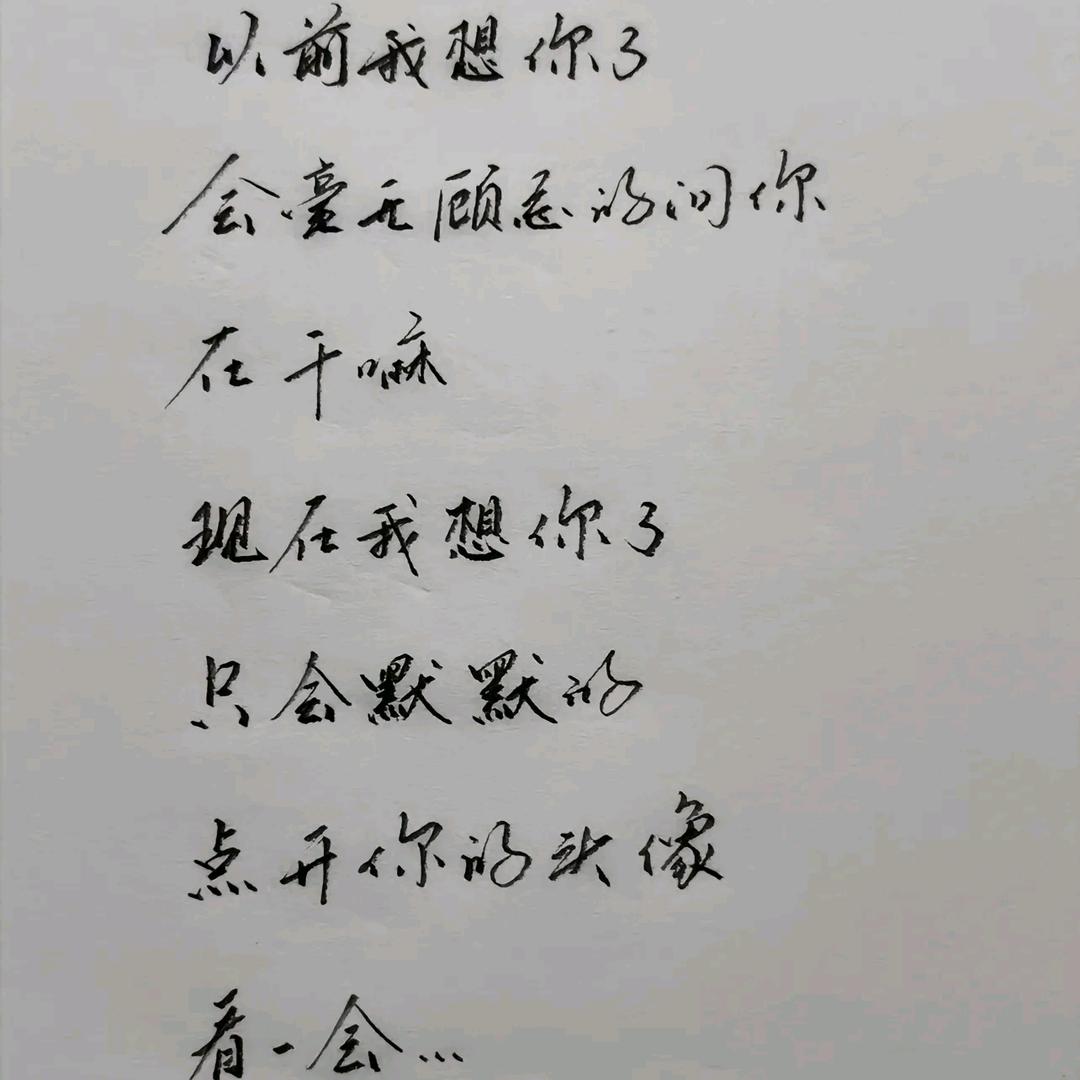 以前我想你了
会毫无顾忌的问你
在干嘛
现在我想你了
只会默默的
点开你的头像
看一会...